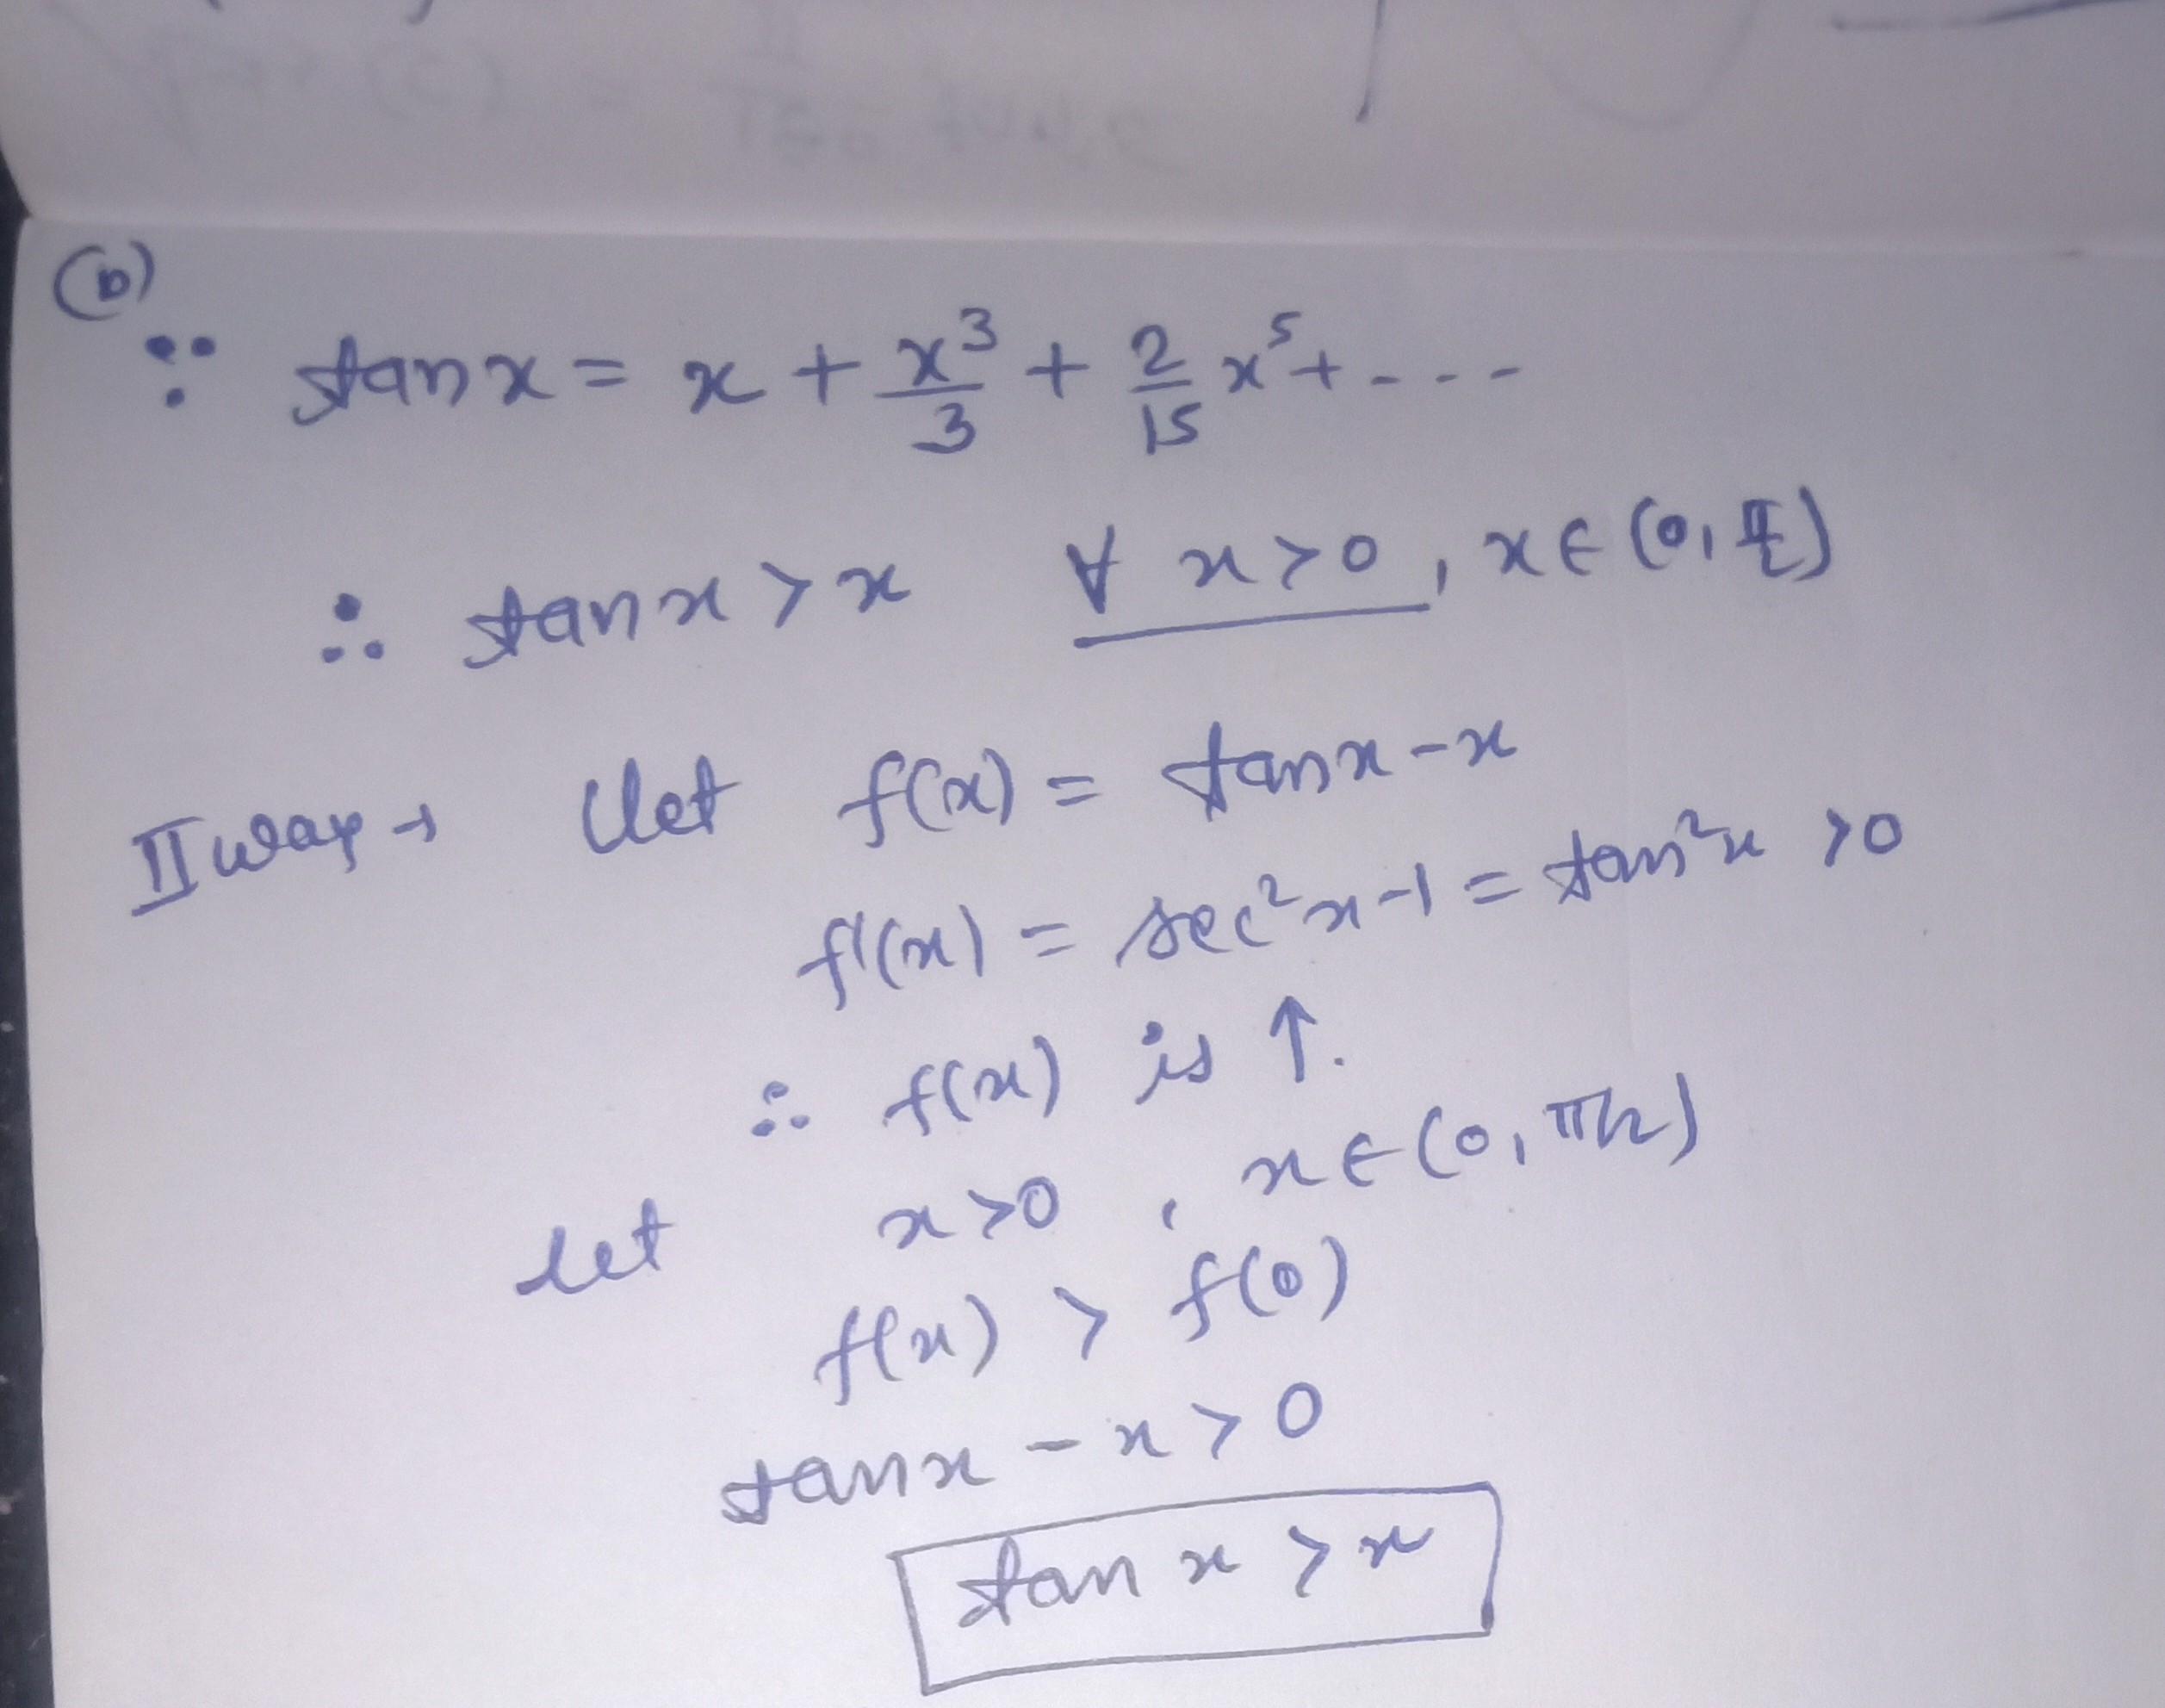 (b)
∵ tan x = x + x³/3 + 2/15 x⁵ + - - -
∴ tan x > x ∀ x > 0, x ∈ (0, π/2)
II way → Let f(x) = tan x - x
f'(x) = sec² x - 1 = tan² x > 0
∴ f(x) is ↑.
let x > 0, x ∈ (0, π/2)
f(x) > f(0)
tan x - x > 0
tan x > x